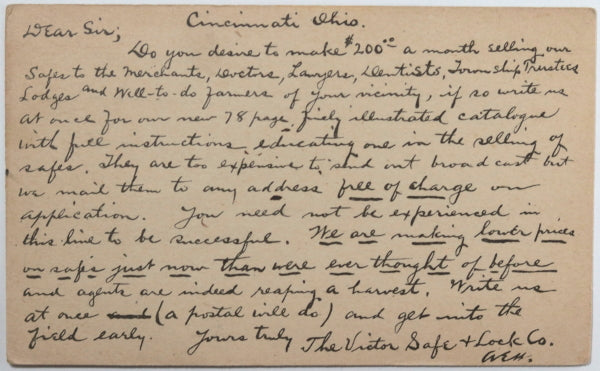 Cincinnati Ohio.
Dear Sir;
Do you desire to make $200.00 a month selling our
Safes to the Merchants, Doctors, Lawyers, Dentists, Township Trustees
Lodges and Well-to-do farmers of your vicinity, if so write us
at once for our new 78 page, finely illustrated catalogue
with full instructions, educating one in the selling of
safes. They are too expensive to send out broad cast but
we mail them to any address free of charge on
application. You need not be experienced in
this line to be successful. We are making lower prices
on safes just now than were ever thought of before
and agents are indeed reaping a harvest. Write us
at once and (a postal will do) and get into the
field early. Yours truly The Victor Safe & Lock Co.